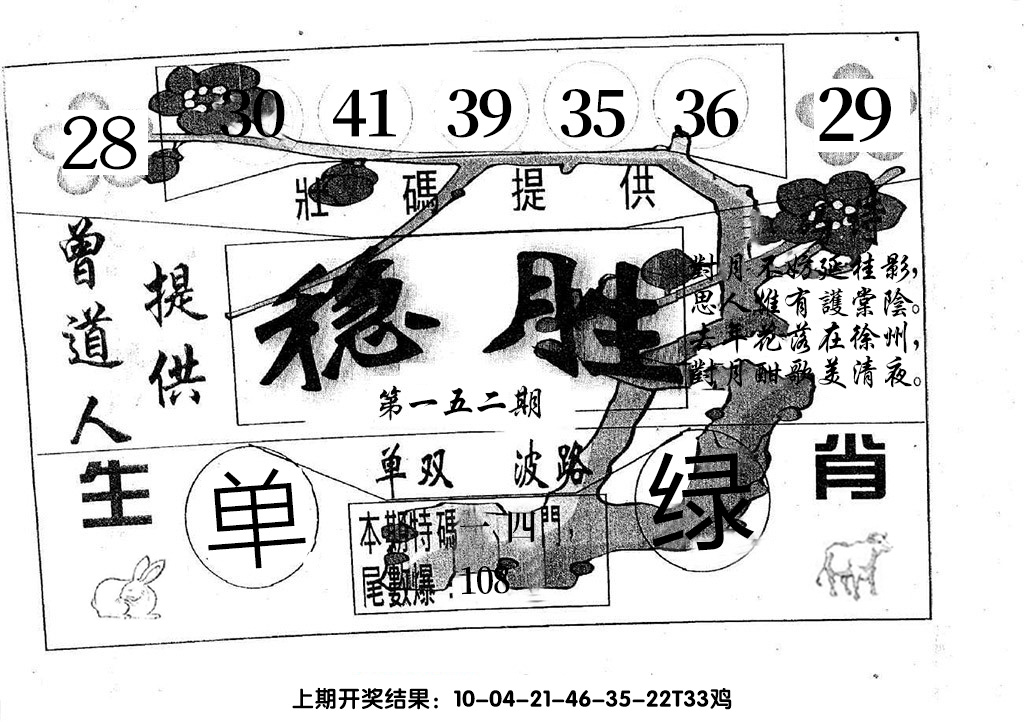 28 30 41 39 35 36 29
壯碼提供
曾道人
提供
稳胜
第一五二期
特
對月不妨延桂影,
思人誰有護棠陰。
去年花落在徐州,
對月酣歌美清夜。
生
单
单双 波路
绿
肖
本期特碼一、四門,
尾數爆:108
上期开奖结果:10-04-21-46-35-22T33鸡